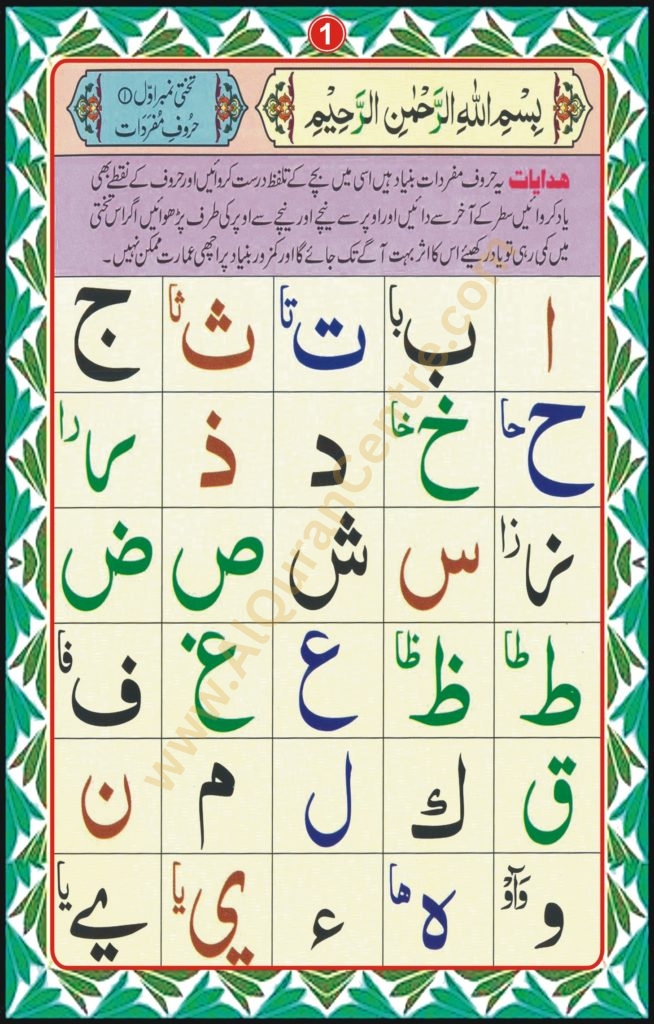 1
بِسْمِ اللهِ الرَّحْمٰنِ الرَّحِيْمِ
تختی نمبر اوّل ①
حُروفِ مُفرَدَات
ھدایات یہ حروف مفردات بنیاد ہیں اسی میں بچے کے تلفظ درست کروائیں اور حروف کے نقطے بھی
یاد کروائیں سطر کے آخر سے دائیں اور اوپر سے نیچے اور نیچے سے اوپر کی طرف پڑھوائیں اگر اس تختی
میں کمی رہی تو یاد رکھیئے اس کا اثر بہت آگے تک جائے گا اور کمزور بنیاد پر اچھی عمارت ممکن نہیں۔
ا ب با ت تا ث ثا ج
ح حا خ خا د ذ ر را
ز زا س ش ص ض
ط طا ظ ظا ع غ ف فا
ق ك ل م ن
و وَآوْ ہ ھا ء ي یا ے یا
www.AlQuranCentre.com